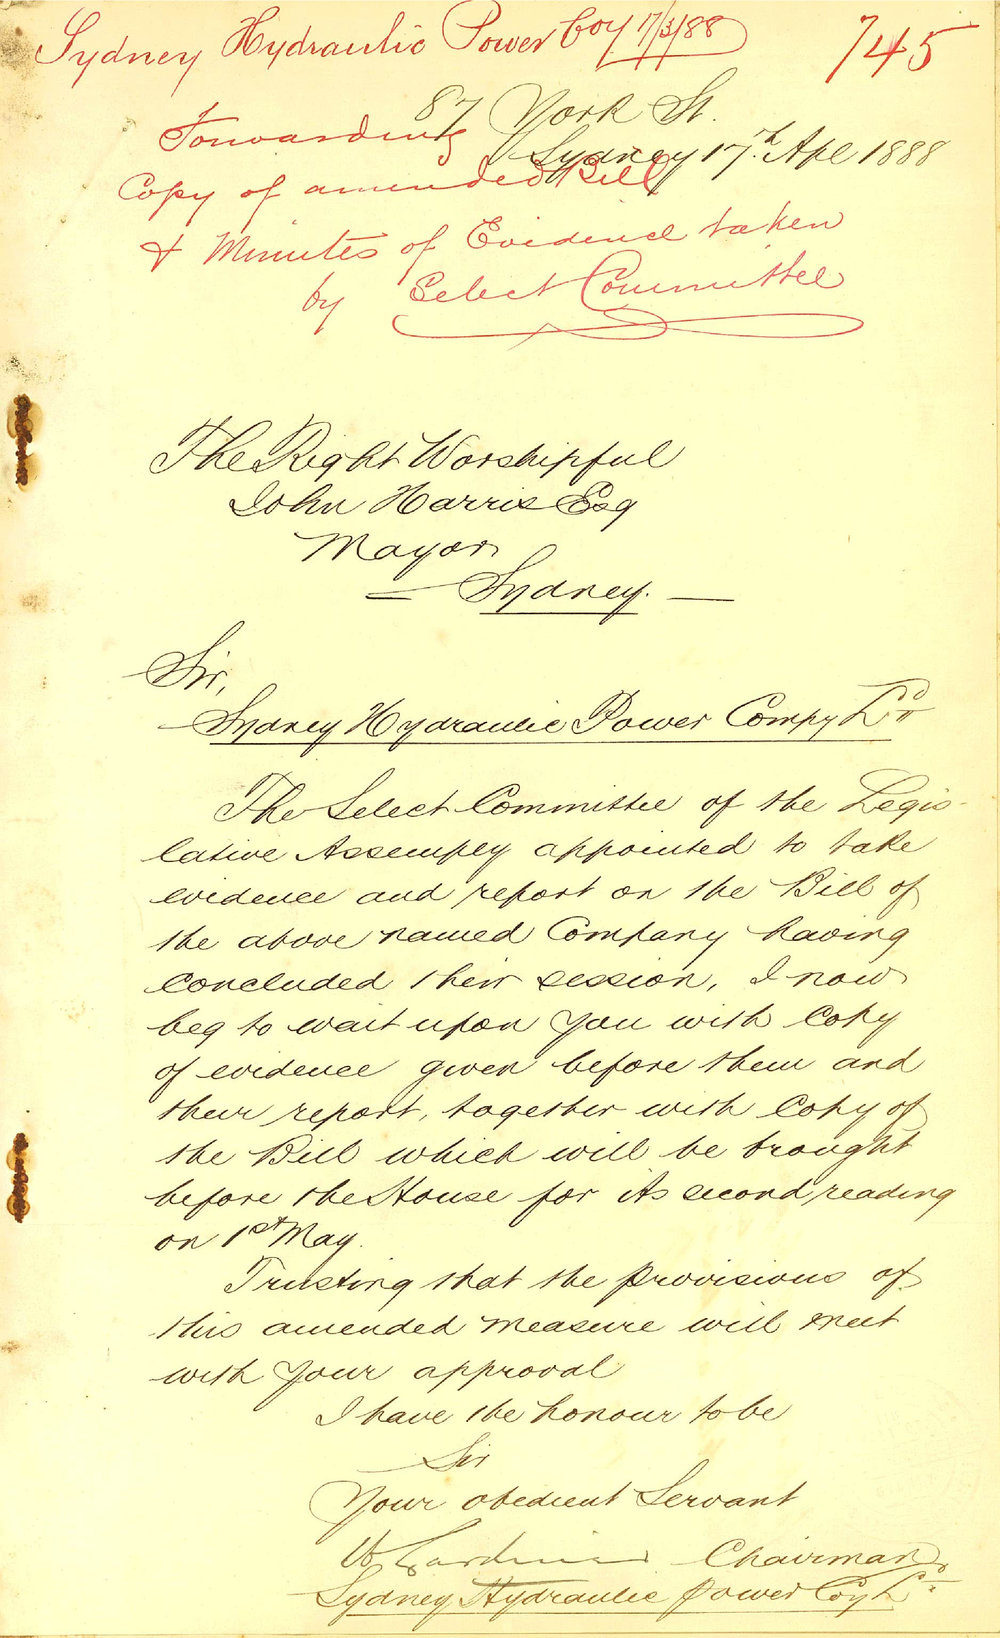 Sydney Hydraulic Power Coy 17/3/88
745
87 York St.
Sydney 17th Apl 1888
Forwarding
Copy of amended Bill
& Minutes of Evidence taken
by Select Committee
The Right Worshipful
John Harris Esq
Mayor
Sydney.
Sir,
Sydney Hydraulic Power Compy Ld
The Select Committee of the Legis-
lative Assembly appointed to take
evidence and report on the Bill of
the above named Company having
concluded their session, I now
beg to wait upon you with Copy
of evidence given before them and
their report, together with Copy of
the Bill which will be brought
before the House for its second reading
on 1st May.
Trusting that the provisions of
this amended measure will meet
with your approval
I have the honour to be
Sir
Your obedient Servant
Chairman
Sydney Hydraulic Power Coy Ld